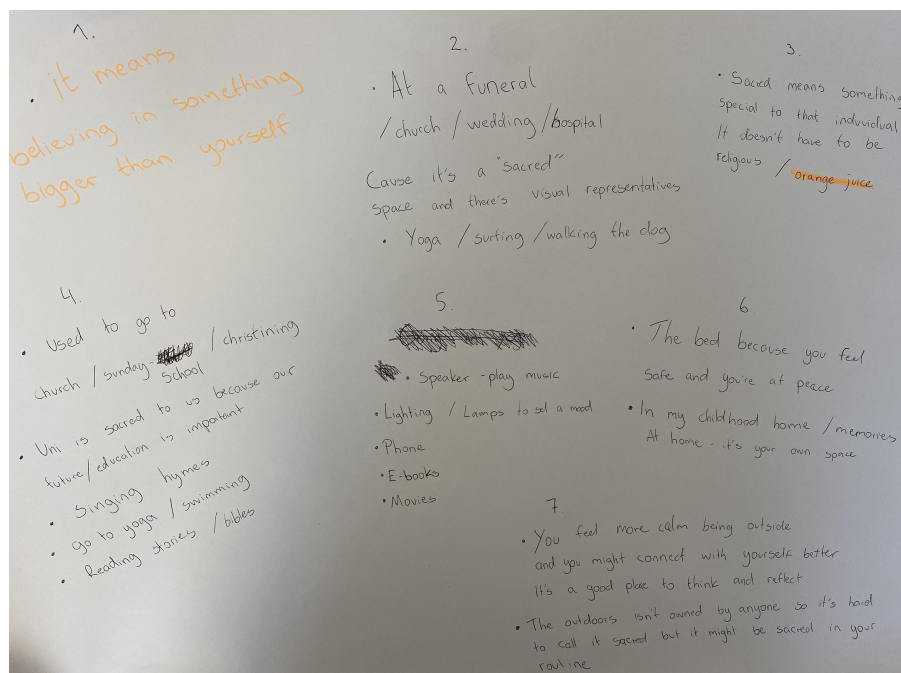 1.
• it means
believing in something
bigger than yourself
2.
• At a funeral
/church / wedding / hospital
Cause it's a "sacred"
space and there's visual representatives
• Yoga / surfing / walking the dog
3.
• Sacred means something
special to that induvidual
It doesn't have to be
religous / orange juice
4.
• Used to go to
church / sunday- / christining
school
• Uni is sacred to us because our
future/education is important
• Singing hymes
• go to yoga / swimming
• Reading stories / bibles
5.
• Speaker - play music
• Lighting / Lamps to set a mood
• Phone
• E-books
• Movies
6
• The bed because you feel
safe and you're at peace
• In my childhood home / memories
At home - it's your own space
7
• You feel more calm being outside
and you might connect with yourself better
It's a good place to think and reflect
• The outdoors isn't owned by anyone so it's hard
to call it sacred but it might be sacred in your
routine